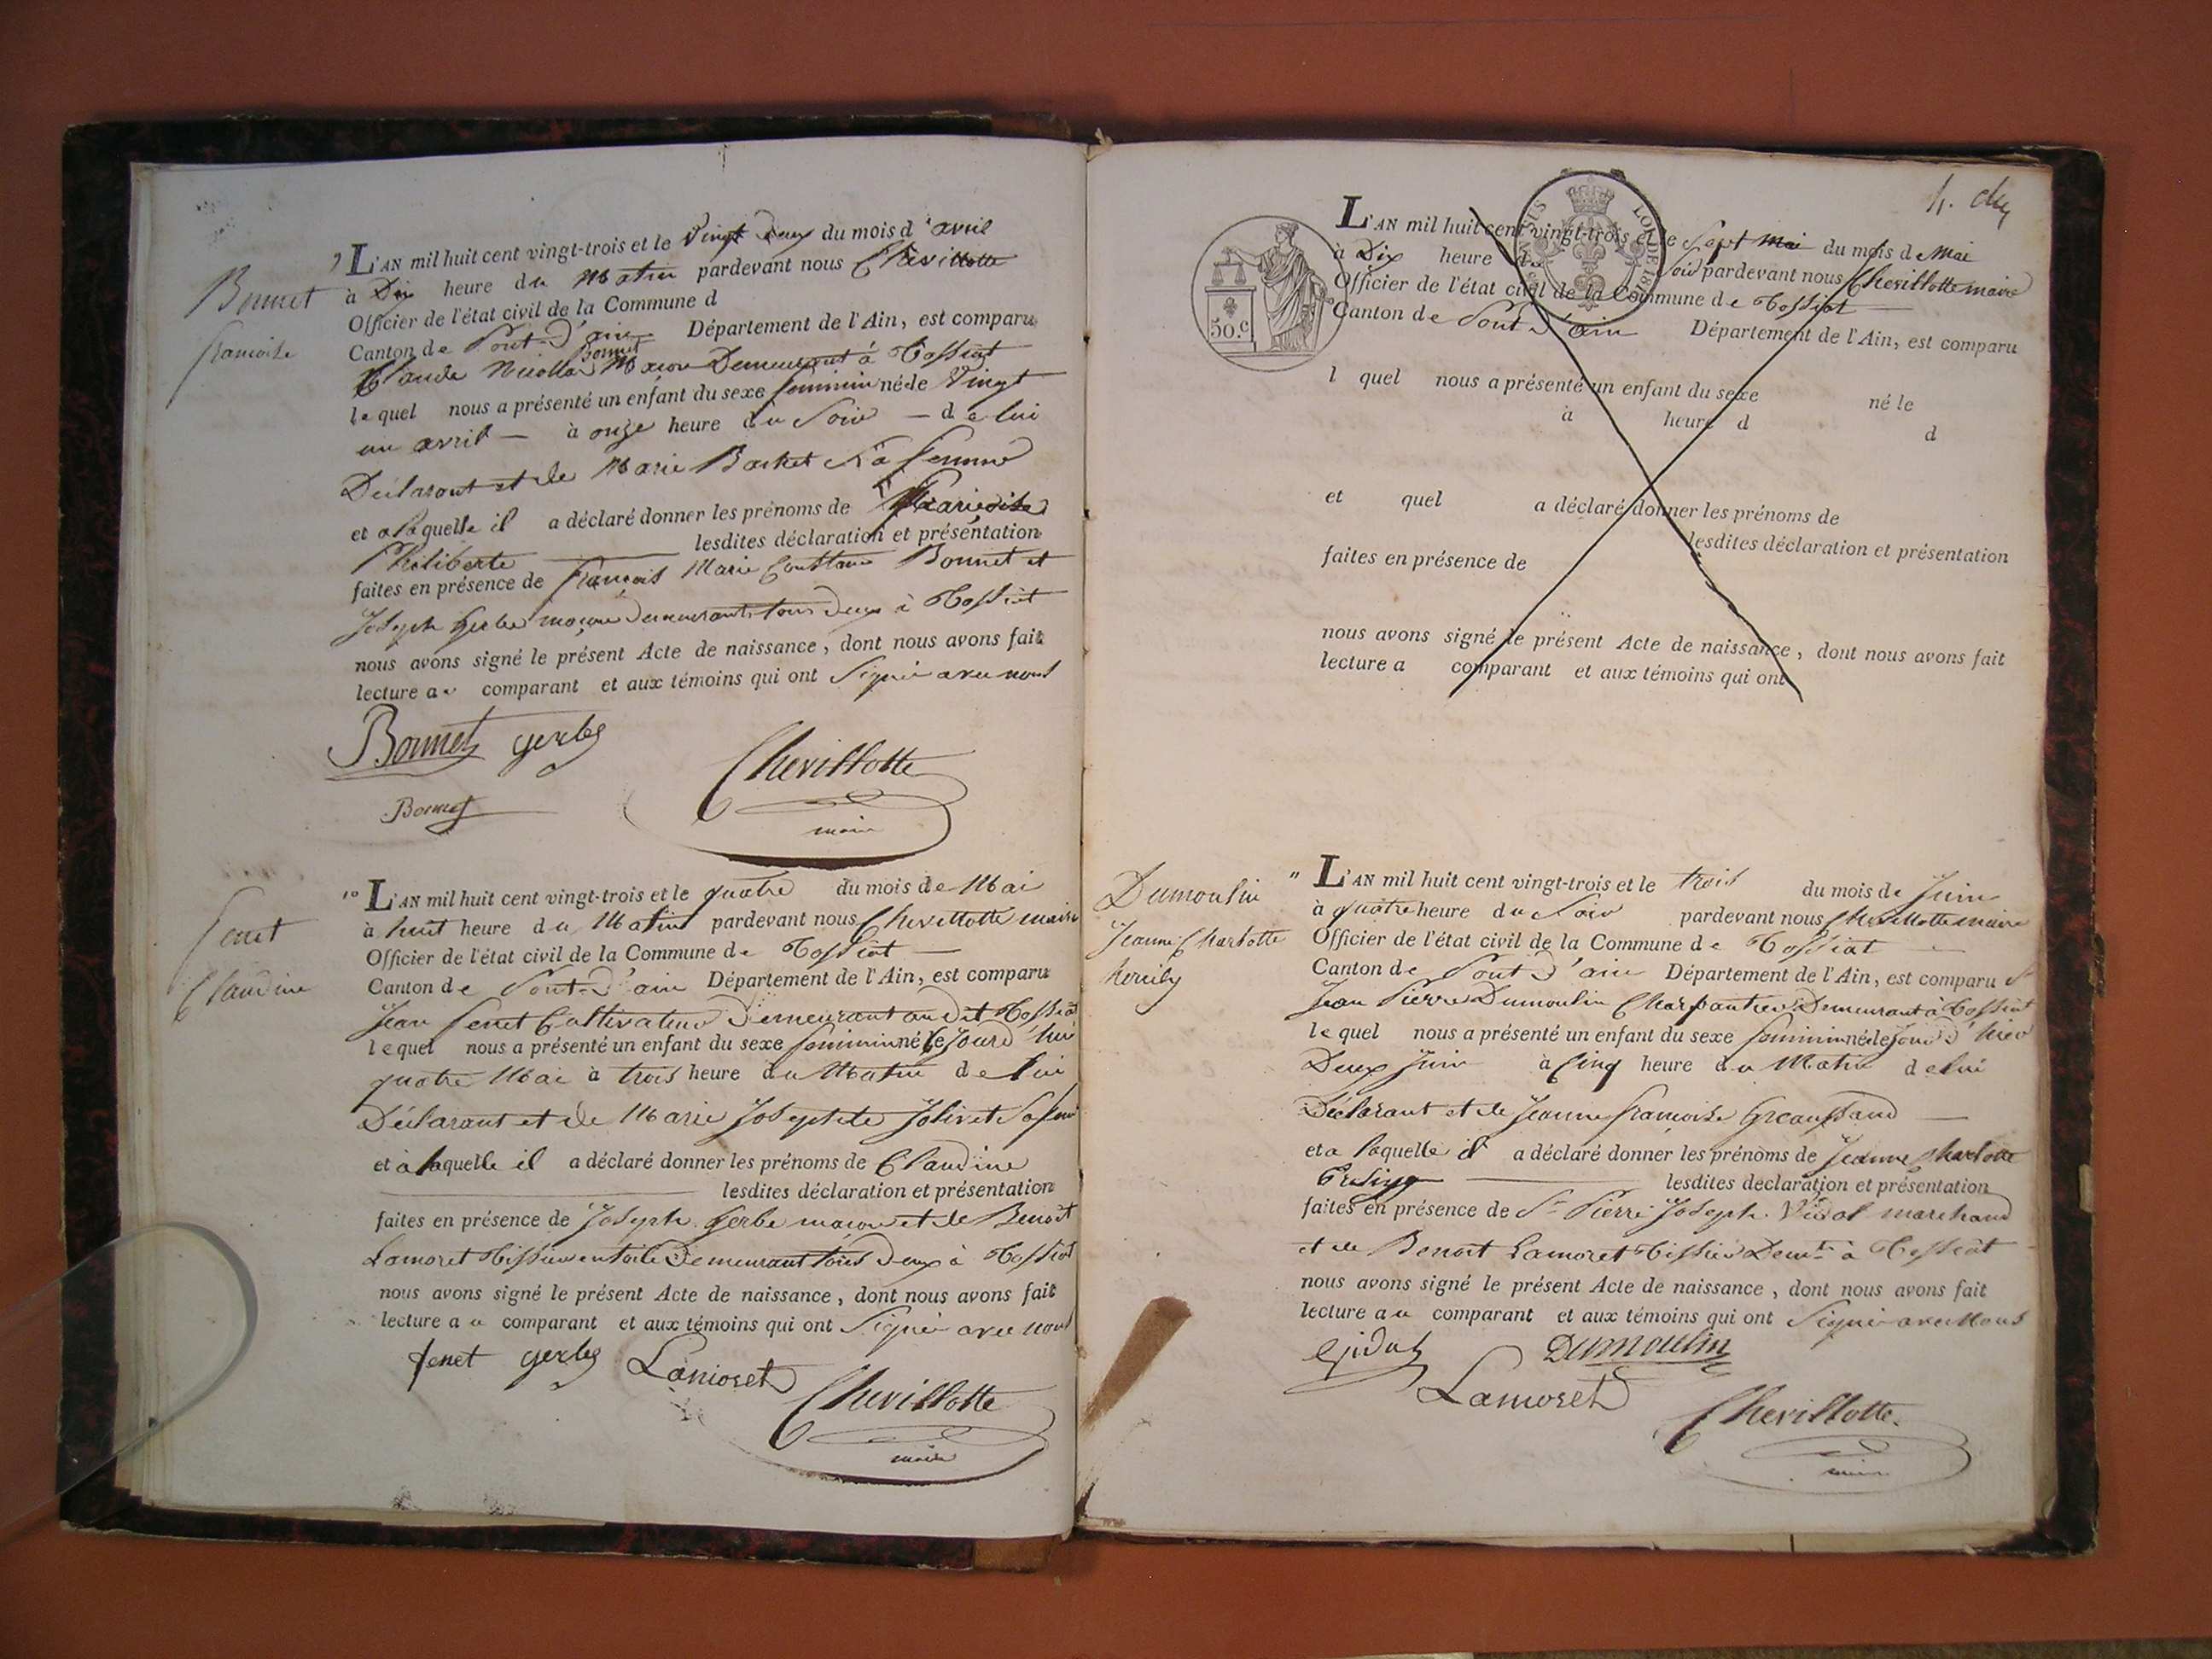 Bonnet
francoise
9 L'AN mil huit cent vingt-trois et le vingt deux du mois d'avril
à Dix heure du Matin pardevant nous Chevillotte
Officier de l'état civil de la Commune d
Canton de Pont-D'ain Département de l'Ain, est comparu
Bonnet
Claude Nicollas Macon Demeurant à Tossiat
lequel nous a présenté un enfant du sexe feminin né le Vingt
un avril — à onze heure du Soir — de lui
Déclarant et de Marie Sa femme
et a laquelle il a déclaré donner les prénoms de
Philiberte lesdites déclaration et présentation
faites en présence de françois Marie Constant Bonnet et
Joseph Gerbe maçon demeurants tous deux à Tossiat
nous avons signé le présent Acte de naissance, dont nous avons fait
lecture au comparant et aux témoins qui ont Signé avec nous
Bonnet gerbe
Chevillotte
Bonnet
maire
fenet
Claudine
10 L'AN mil huit cent vingt-trois et le quatre du mois de Mai
à huit heure du Matin pardevant nous Chevillotte maire
Officier de l'état civil de la Commune de Tossiat
Canton de Pont-D'ain Département de l'Ain, est comparu
Jean fenet Cultivateur Demeurant au dit Tossiat
lequel nous a présenté un enfant du sexe feminin né le Jourd'hui
quatre Mai à trois heure du Matin de lui
Déclarant et de Marie Josephte Jolivet Sa fme
et à laquelle il a déclaré donner les prénoms de Claudine
lesdites déclaration et présentation
faites en présence de Joseph Gerbe maçon et de Benoit
Lamoret Tissier en toile Demeurant tous deux à Tossiat
nous avons signé le présent Acte de naissance, dont nous avons fait
lecture au comparant et aux témoins qui ont Signé avec nous
fenet gerbe Lamoret
Chevillotte
maire
50.c
LOI DE 1816
L'AN mil huit cent vingt-trois et le Sept Mai du mois de Mai
à Dix heure du Soir pardevant nous Chevillotte maire
Officier de l'état civil de la Commune de Tossiat
Canton de Pont D'ain Département de l'Ain, est comparu
l quel nous a présenté un enfant du sexe né le
à heure d d
et quel a déclaré donner les prénoms de
lesdites déclaration et présentation
faites en présence de
nous avons signé le présent Acte de naissance, dont nous avons fait
lecture a comparant et aux témoins qui ont
Dumoulin
Jeanne Charlotte
11 L'AN mil huit cent vingt-trois et le trois du mois de Juin
à quatre heure du Soir pardevant nous Chevillotte maire
Officier de l'état civil de la Commune de Tossiat
Canton de Pont D'ain Département de l'Ain, est comparu Sr
Jean Pierre Dumoulin Charpantier Demeurant à Tossiat
lequel nous a présenté un enfant du sexe feminin né le Jour D'hier
Deux Juin à Cinq heure du Matin de lui
Déclarant et de Jeanne françoise
et a laquelle il a déclaré donner les prénoms de Jeanne Charlotte
lesdites déclaration et présentation
faites en présence de Sr Pierre Joseph Vidal marchand
et de Benoit Lamoret Tissier Demt à Tossiat
nous avons signé le présent Acte de naissance, dont nous avons fait
lecture au comparant et aux témoins qui ont Signé avec Nous
Dumoulin
Lamoret
Chevillotte
maire